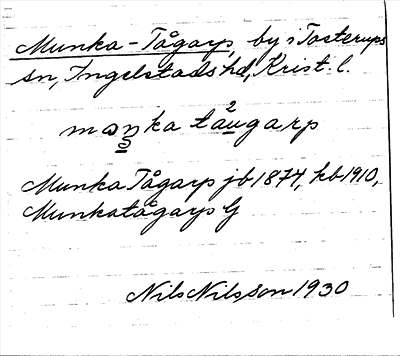 Munka-Tågarp, by i Tosterups
sn, Ingelstads hd, Krist. l.
mɷŋka ta2ugarp
Munka Tågarp jb 1874, kb 1910,
Munkatågarp G
Nils Nilsson 1930